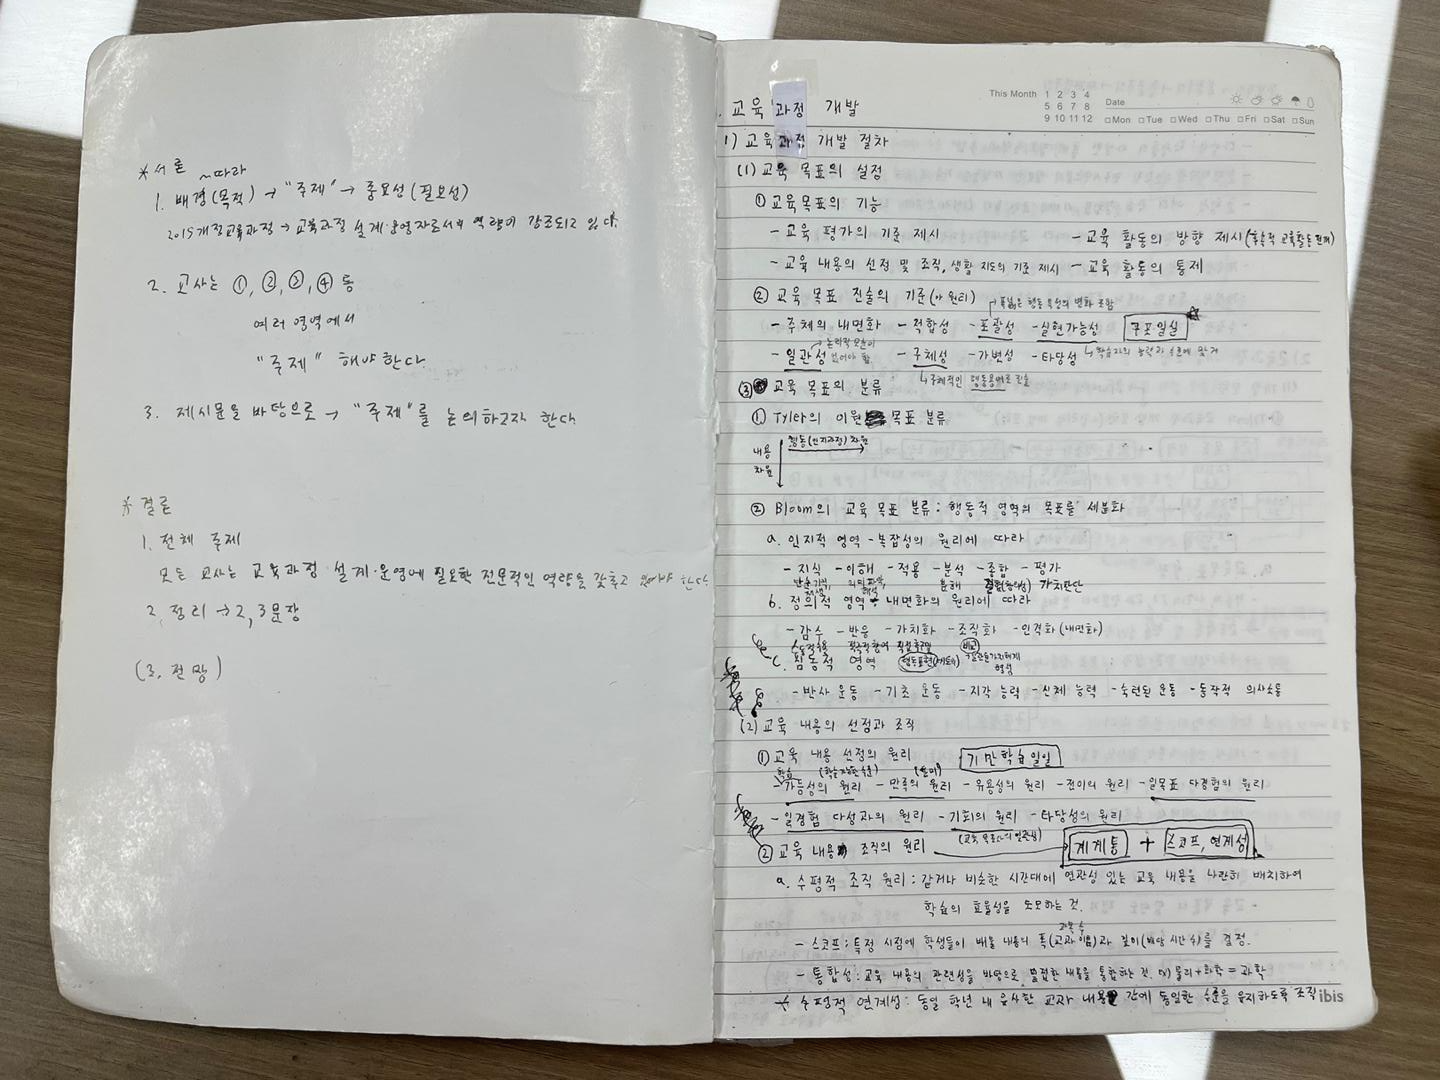 *서론 ~따라
1. 배경(목적) → "주제" → 중요성(필요성)
2015개정교육과정 → 교육과정 설계·운영자로서의 역량이 강조되고 있다.
2. 교사는 ①, ②, ③, ④ 등
여러 영역에서
"주제" 해야 한다.
3. 제시문을 바탕으로 → "주제"를 논의하고자 한다.
* 결론
1. 전체 주제
모든 교사는 교육과정 설계·운영에 필요한 전문적인 역량을 갖추고 있어야 한다.
2. 정리 → 2, 3문장
(3. 전망)
This Month 1 2 3 4
5 6 7 8
9 10 11 12
Date
□Mon □Tue □Wed □Thu □Fri □Sat □Sun
. 교육과정 개발
1) 교육과정 개발 절차
(1) 교육 목표의 설정
① 교육목표의 기능
- 교육 평가의 기준 제시 - 교육 활동의 방향 제시(후속적 교육활동 전개)
- 교육 내용의 선정 및 조직, 생활 지도의 기준 제시 - 교육 활동의 통제
② 교육 목표 진술의 기준(아 원리)
↱ 폭넓은 행동 특성의 변화 포함
- 주체의 내면화 - 적합성 - 포괄성 - 실현가능성 구포일실
↳ 학습자의 능력과 수준에 맞게
- 일관성 - 구체성 - 가변성 - 타당성
→ 논리적 모순이 없어야 함.
↳ 구체적인 행동용어로 진술
③ 교육 목표의 분류
① Tyler의 이원 목표 분류
행동(인지과정) 차원
내용 차원
② Bloom의 교육 목표 분류 : 행동적 영역의 목표를 세분화
a. 인지적 영역 - 복잡성의 원리에 따라
- 지식 - 이해 - 적용 - 분석 - 종합 - 평가
단순기억, 재생 의미파악, 해석 분해 결합(창의성) 가치판단
b. 정의적 영역 - 내면화의 원리에 따라
- 감수 - 반응 - 가치화 - 조직화 - 인격화(내면화)
비교
c. 심동적 영역
- 반사 운동 - 기초 운동 - 지각 능력 - 신체 능력 - 숙련된 운동 - 동작적 의사소통
(2) 교육 내용의 선정과 조직
① 교육 내용 선정의 원리 기만학습일일
학습 (학습자의 수준) (흥미)
- 가능성의 원리 - 만족의 원리 - 유용성의 원리 - 전이의 원리 - 일목표 다경험의 원리
- 일경험 다성과의 원리 - 기회의 원리 - 타당성의 원리
(교육 목표와의 일관성)
② 교육 내용 조직의 원리 계계통 + 스코프, 연계성
a. 수평적 조직 원리 : 같거나 비슷한 시간대에 연관성 있는 교육 내용을 나란히 배치하여
학습의 효율성을 도모하는 것.
교과목 수
- 스코프 : 특정 시점에 학생들이 배울 내용의 폭(교과 이름)과 깊이(배당 시간 수)를 결정.
- 통합성 : 교육 내용의 관련성을 바탕으로, 밀접한 내용을 통합하는 것. ex) 물리 + 화학 = 과학
* 수평적 연계성 : 동일 학년 내 유사한 교과 내용 간에 동일한 수준을 유지하도록 조직
ibis